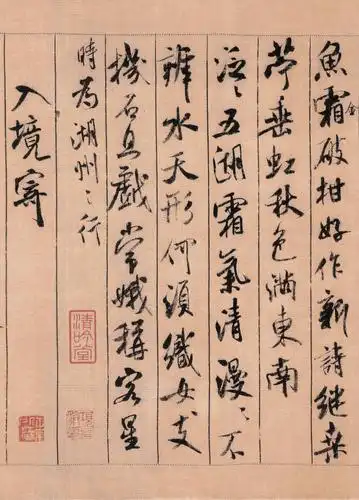 魚霜破柑好作新詩繼桑
金
苧垂虹秋色滿東南
泛〻五湖霜氣清漫〻不
辨水天形何須織女支
機石且戲常娥稱客星
時為湖州之行
入境寄
清吟堂